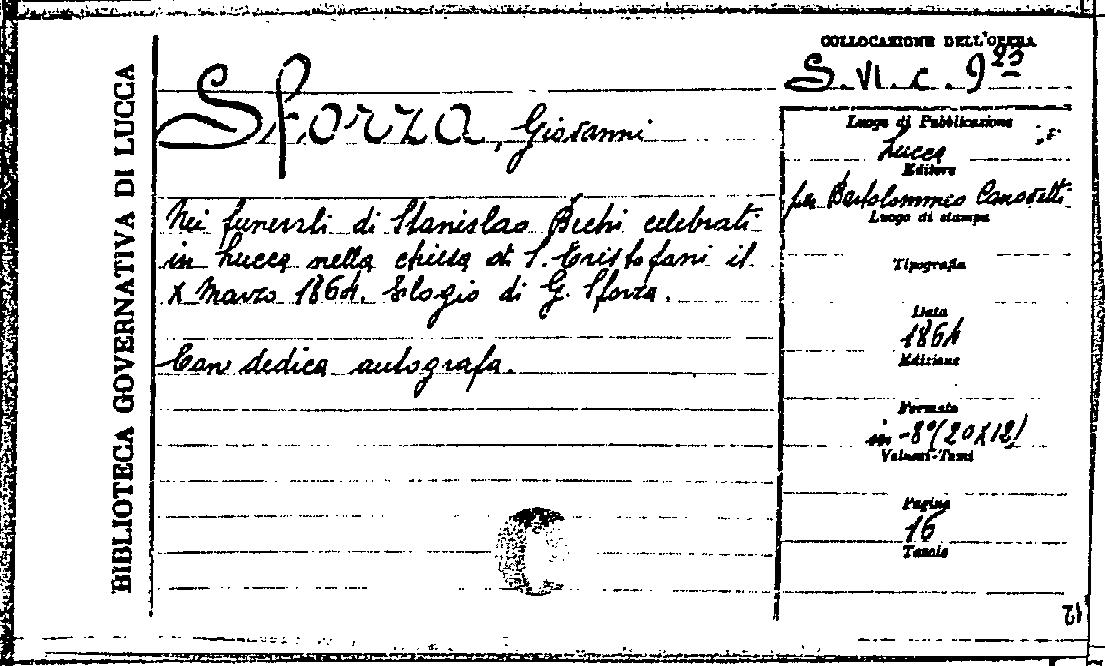 BIBLIOTECA GOVERNATIVA DI LUCCA
Sforza, Giovanni
Nei funerali di Stanislao Bechi celebrati
in Lucca nella chiesa di S. Cristofani il
X Marzo 1864. Elogio di G. Sforza.
Con dedica autografa.
COLLOCAZIONE DELL'OPERA
S. VI. C. 9
Luogo di Pubblicazione
Lucca
Editore
per Bartolommeo Canovetti
Luogo di stampa
Tipografia
Data
1864
Edizione
Formato
in-8° (20X12)
Volumi-Tomi
Pagine
16
Tavole